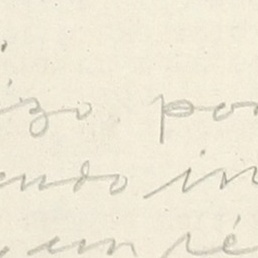 izo po
endo in
un ré